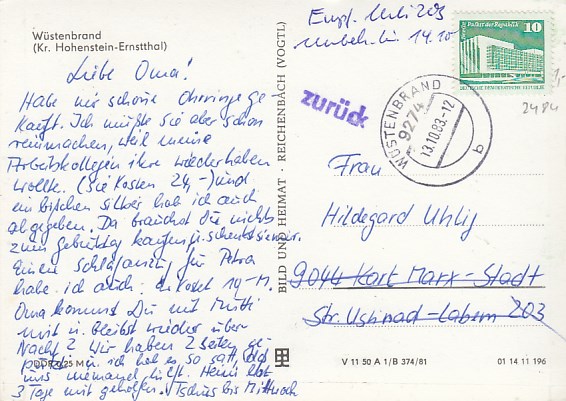 Wüstenbrand
(Kr. Hohenstein-Ernstthal)
Liebe Oma!
Habe mir schöne Ohrringe ge
kauft. Ich müßte sie aber schon
reinmachen, weil meine
Arbeitskollegin ihre wiederhaben
wollte. (Sie kosten 24,-) und
ein bißchen silber hab ich auch
abgegeben. Da brauchst Du nichts
zum Geburtstag kaufen u. schenkst sie mir.
Einen Schlafanzug für Petra
habe ich auch. er kostet 19,-M.
Oma kommst Du mit Mutti
mit u. bleibst wieder über
Nacht? Wir haben 2 Seiten ge
u. ich hab es so satt, daß
uns niemand hilft. Heini hat
3 Tage mit geholfen. Tschüs bis Mittwoch
M
BILD UND HEIMAT · REICHENBACH (VOGTL)
Empf. 203
unbek. 14.10
zurück
WÜSTENBRAND
9274
13.10.83-12
b
Palast der Republik
10
DEUTSCHE DEMOKRATISCHE REPUBLIK
2484
Frau
Hildegard Uhlig
9044 Karl-Marx-Stadt
Str. Usti nad Labem 203
V 11 50 A 1/B 374/81
01 14 11 196